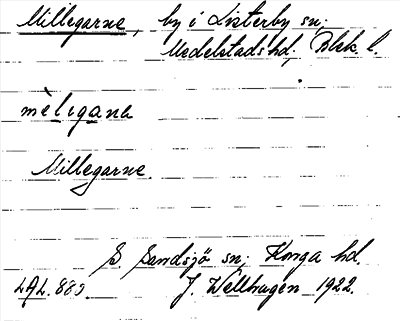 Millegarne, by i Listerby sn;
Medelstads hd; Blek. l.
mèligana
Millegarne.
S. Sandsjö sn; Konga hd.
LAL. 880. J. Wellhagen 1922.